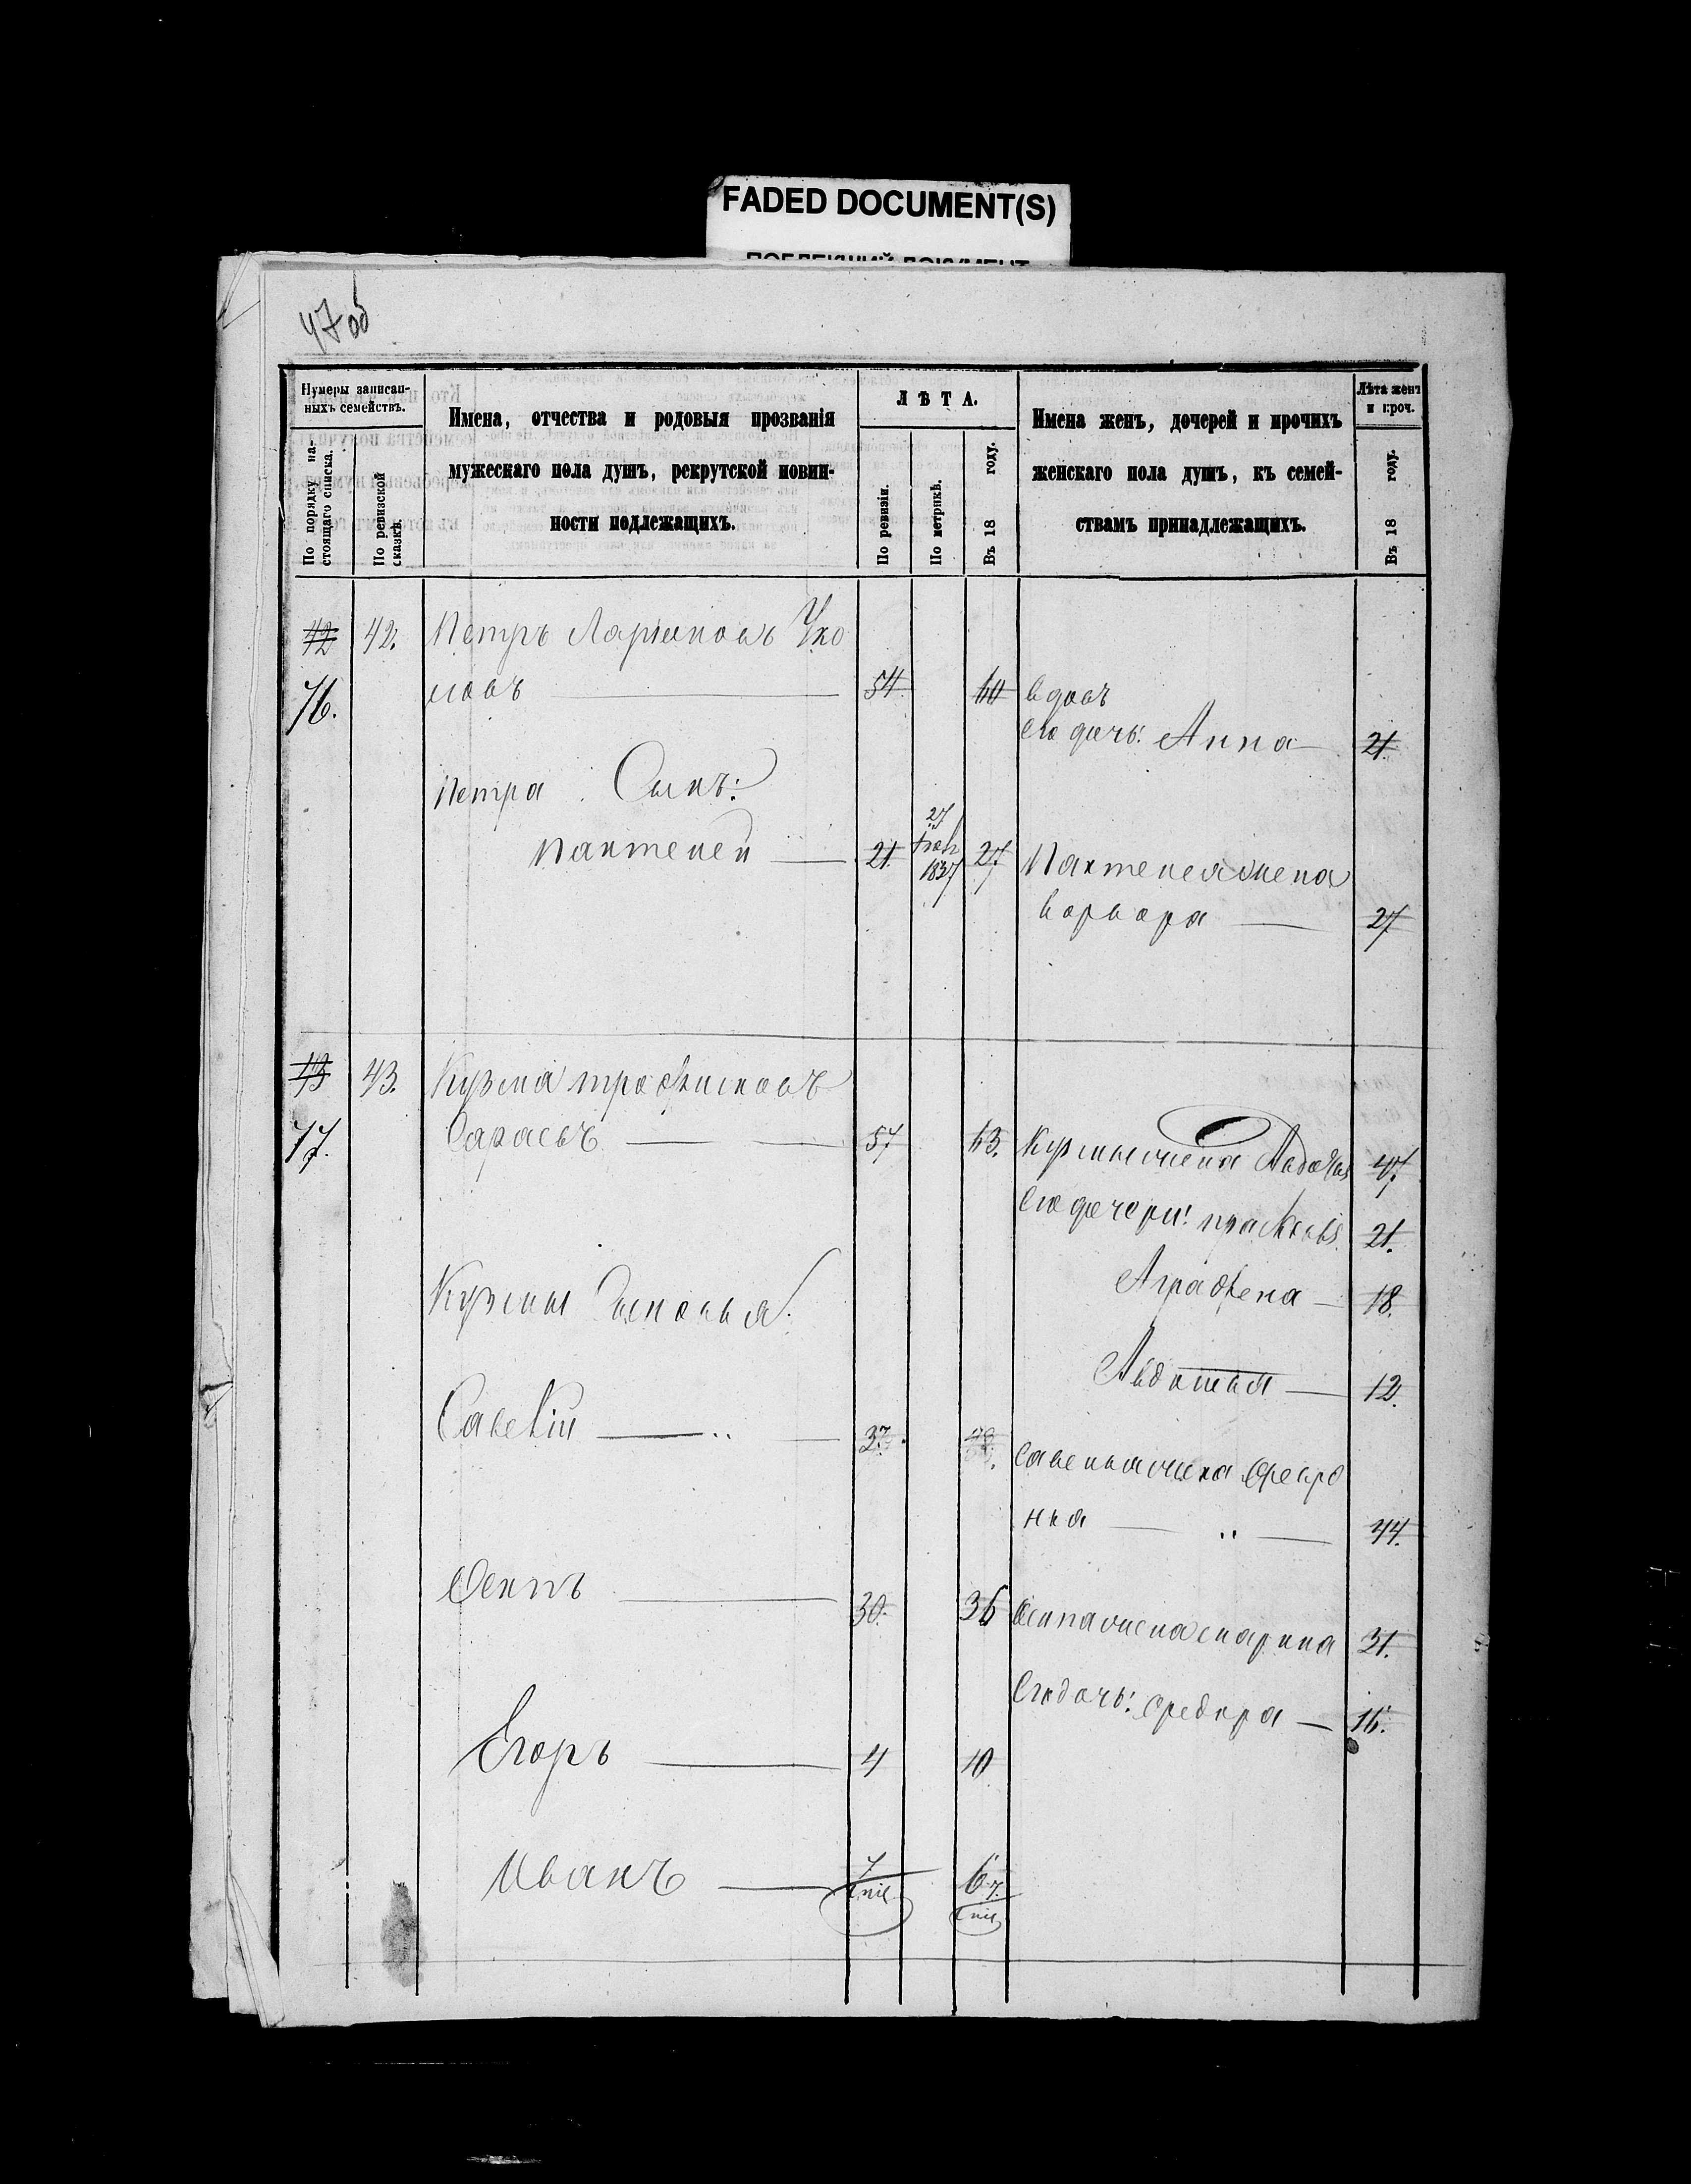 FADED DOCUMENT(S)
47 об
Нумеры записан-
ныхъ семействъ.
По порядку на-
стоящаго списка.
По ревизской
сказкѣ.
Имена, отчества и родовыя прозванія
мужескаго пола душъ, рекрутской повин-
ности подлежащихъ.
ЛѢТА.
По ревизіи.
По метрикѣ.
Въ 18 году.
Имена женъ, дочерей и прочихъ
женскаго пола душъ, къ семей-
ствамъ принадлежащихъ.
Лѣта женъ
и проч.
Въ 18 году.
42 42. Петръ Ларионовъ Уко
76. ловъ 54 60 вдовъ
Его дочь: Анна 21.
Петра Сынъ:
Пантелей 21. 27 1837 27 Пантелея жена
Варвара 27
43 43. Кузма трофимовъ
77. Сараевъ 57 63. Кузмы жена Авдотья 47.
Его дочери: прасковья 21.
Аграфена 18.
Кузмы Сыновья:
Авдотья 12.
Савелій 37.
Савелья жена Февро
нья 44.
Осипъ 30. 36 Осипа жена марина 31.
Его дочь: федора 16.
Егоръ 4 10
Иванъ 7 6 7.